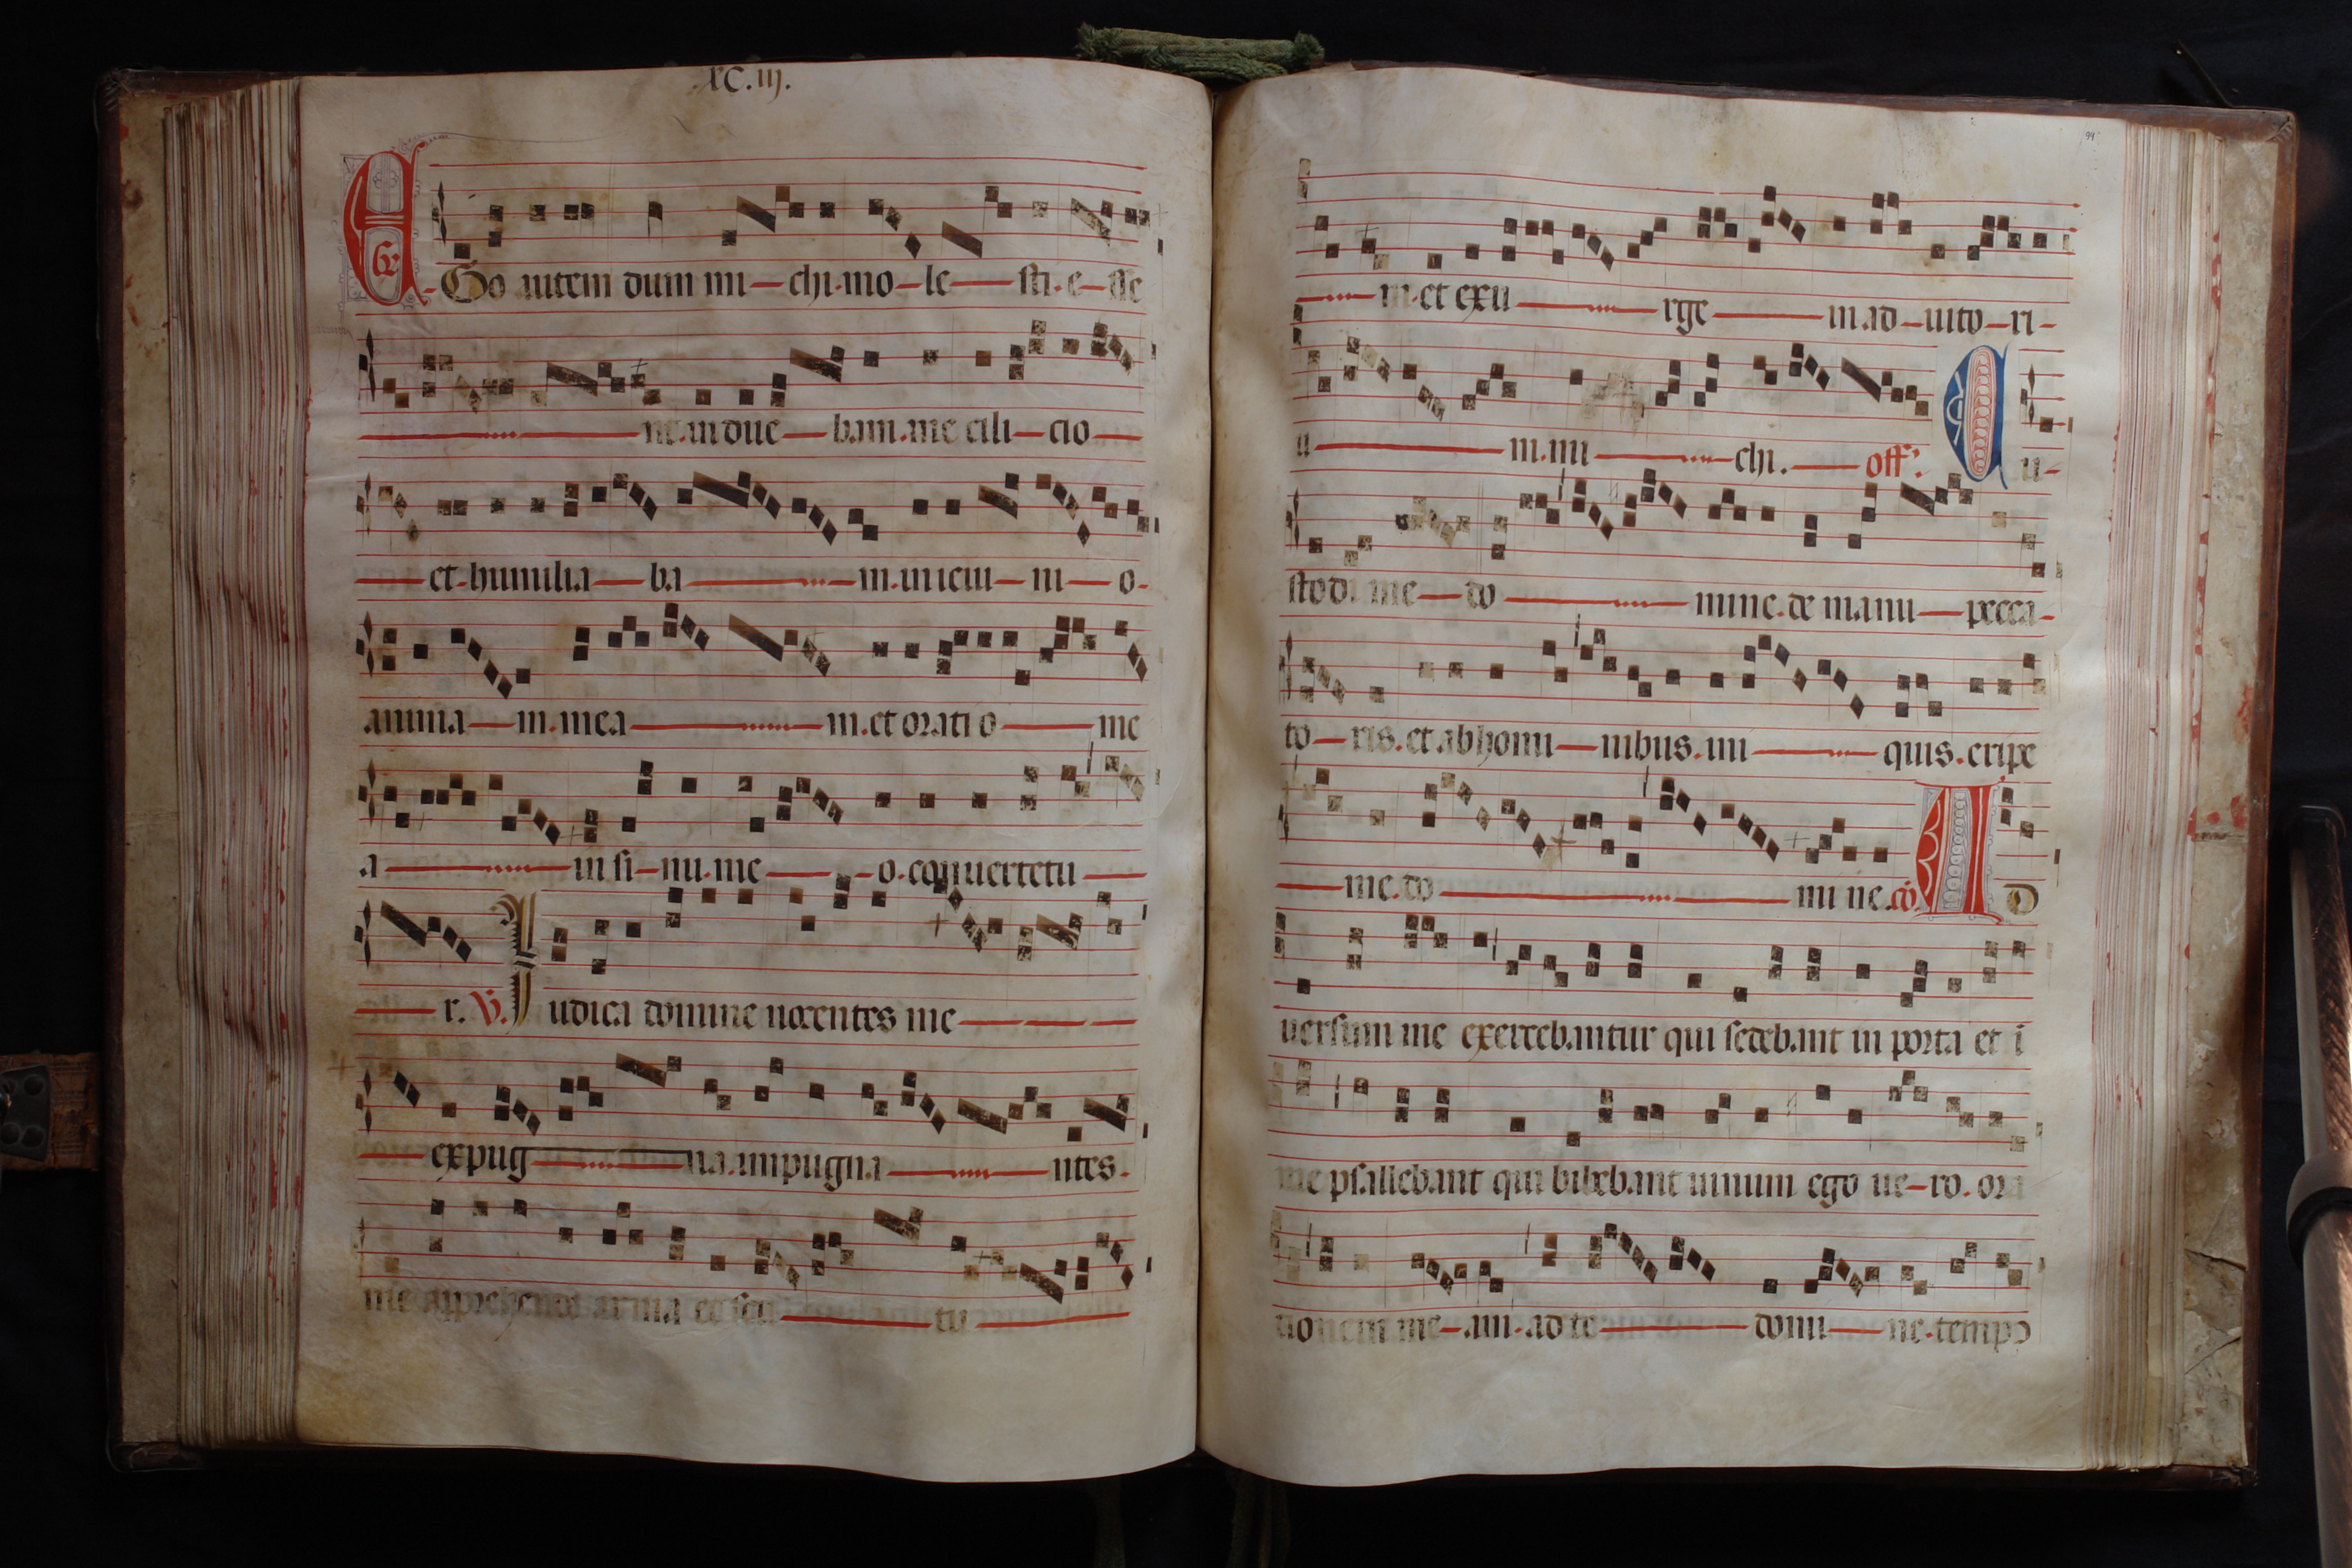 .XC.iij.
Gr
EGo autem dum mi chi. mo le sti. e sse
nt. indue bam. me cili cio
et. humilia ba m. in ieiu ni o.
anima m. mea m. et orati o me
a in si nu. me o. conuertetu
r. V. Iudica domine nocentes me
expug na. impugna ntes.
me apprehende arma et scu tu
94
m. et exu rge in. ad iuto ri
u m. mi chi. off. Cu
stodi me do mine. de manu pecca
to ris. et ab homi nibus. ini quis. eripe
me. do mi ne. co. AD
uersum me exercebantur qui sedebant in porta et i
me psallebant qui bibebant uinum ego ue ro. ora
tionem me am. ad te domi ne. tempo